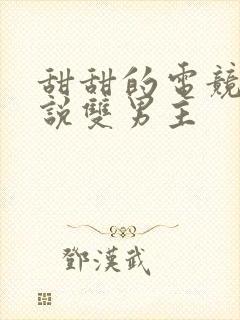 甜甜的電競
說雙男主
鄧漢武